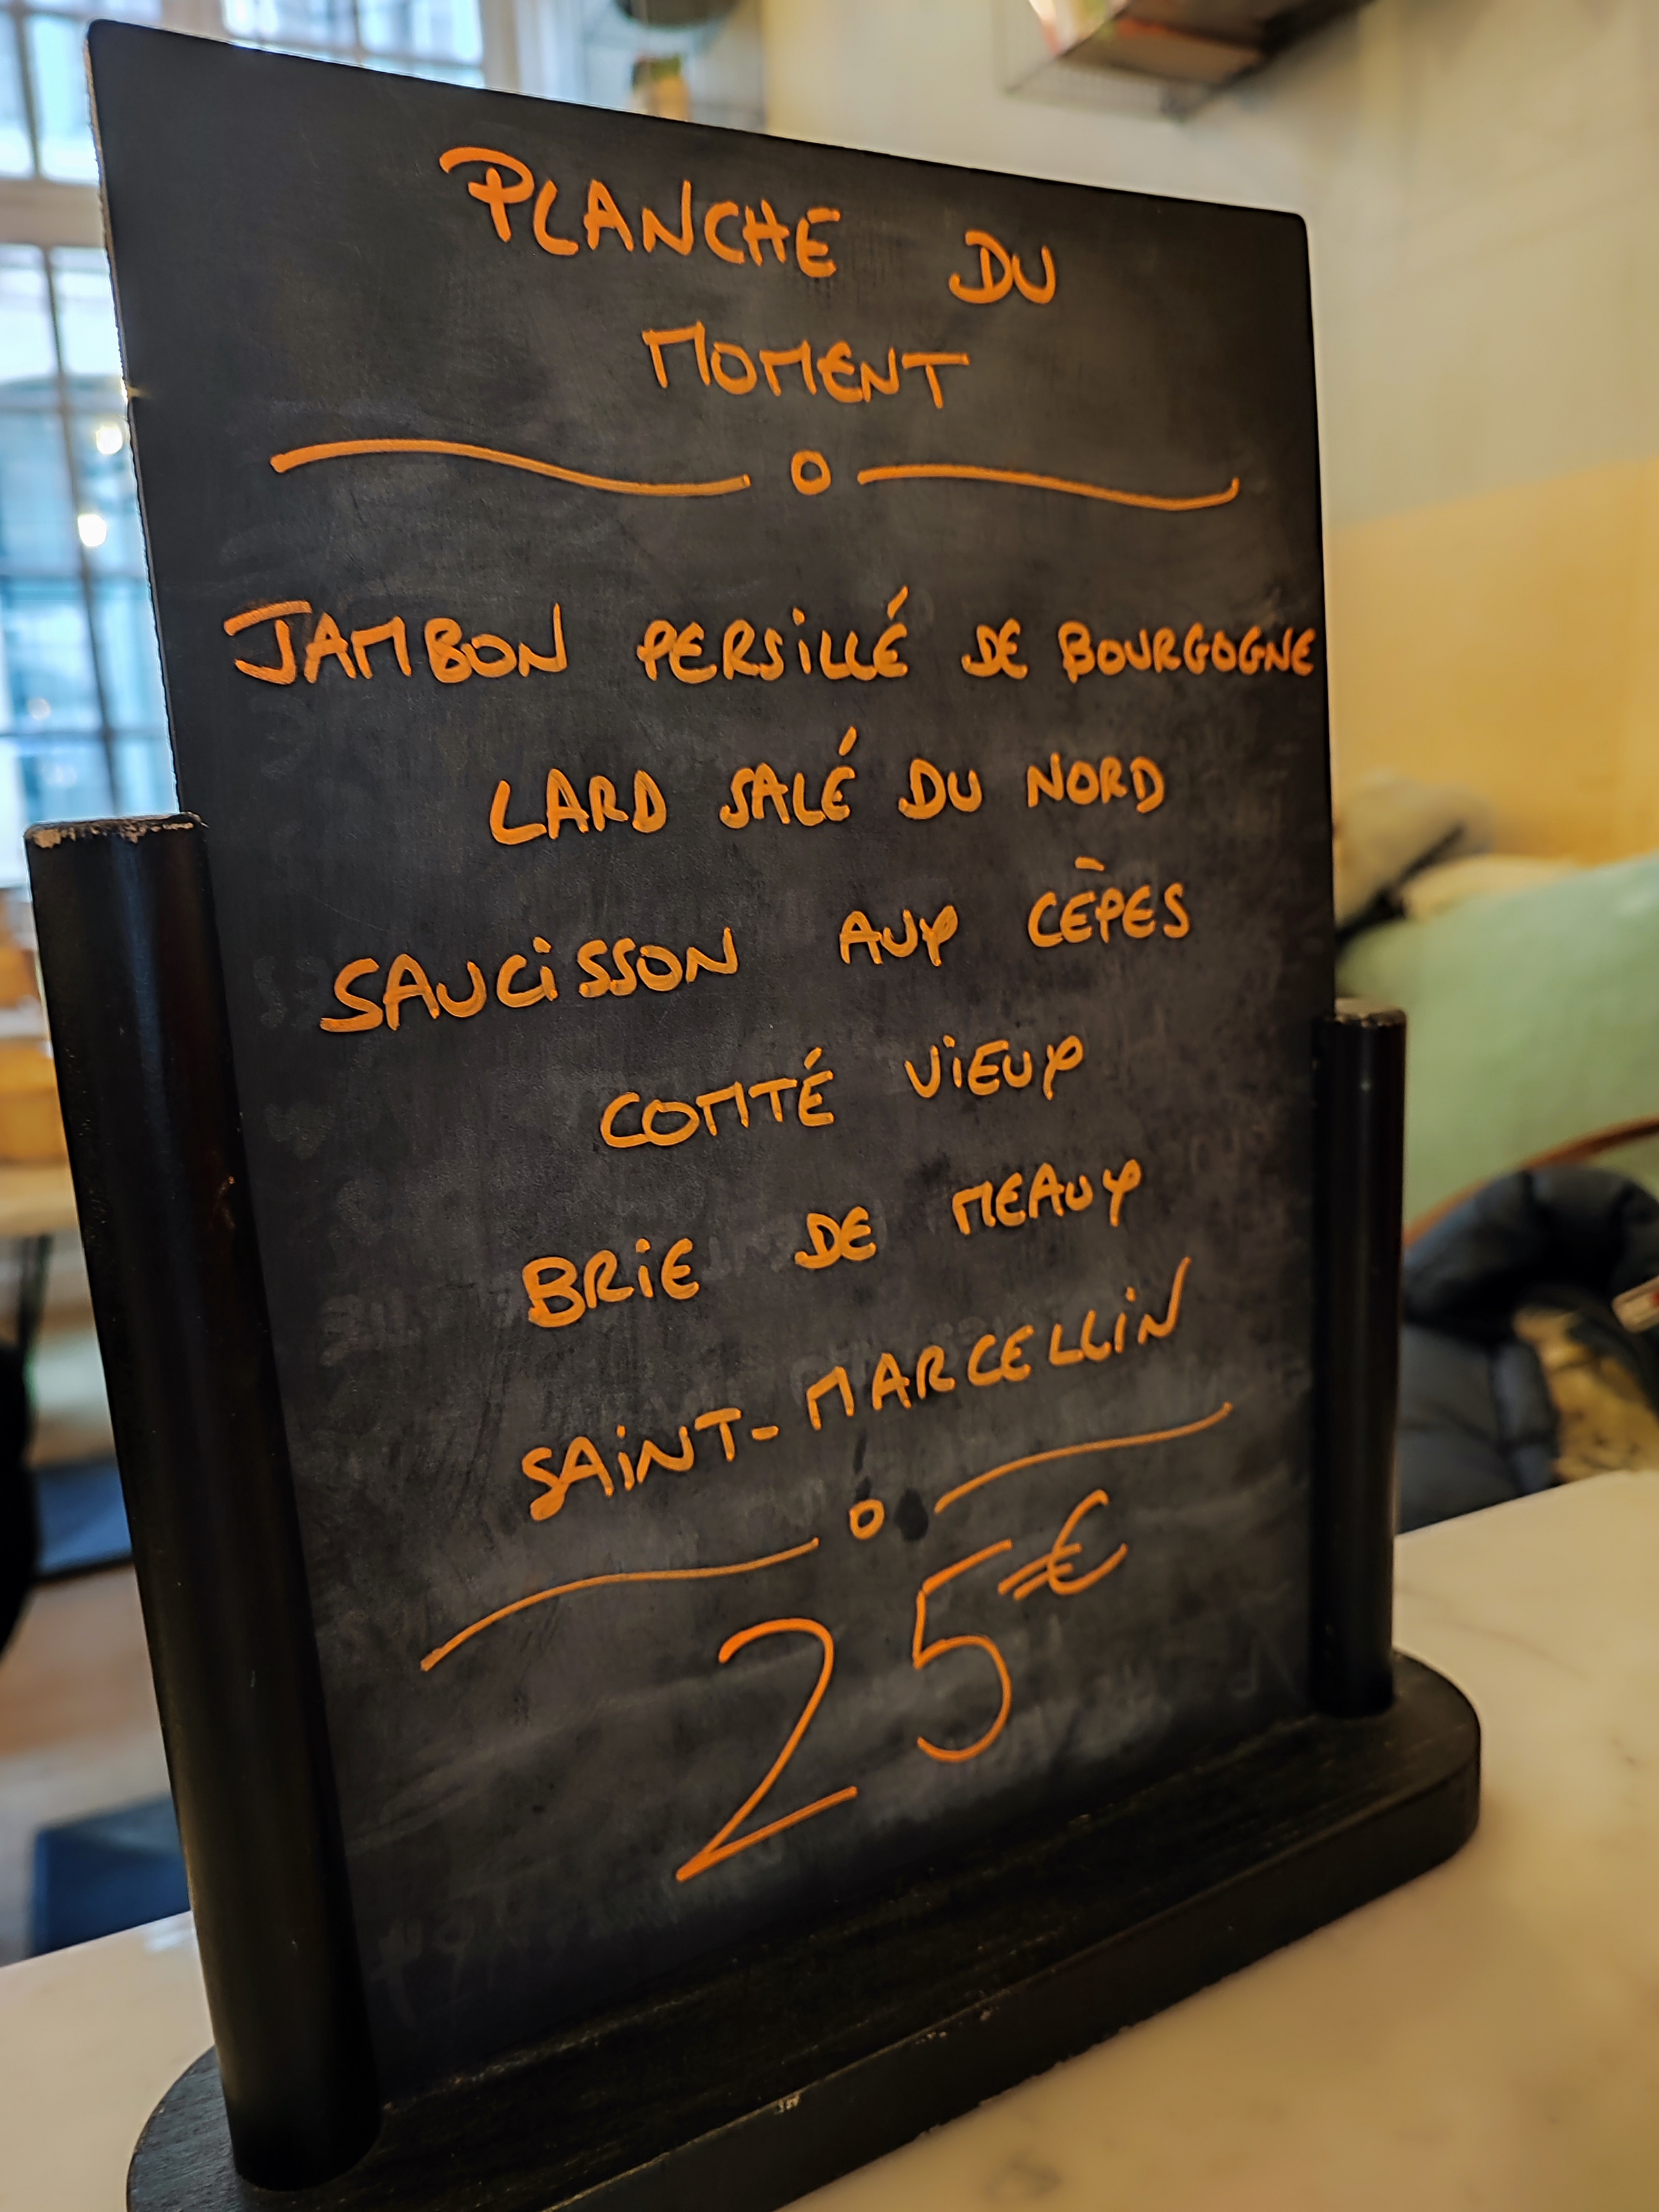 PLANCHE DU
MOMENT
JAMBON PERSILLÉ DE BOURGOGNE
LARD SALÉ DU NORD
SAUCISSON AUX CÈPES
COMTÉ VIEUX
BRIE DE MEAUX
SAINT-MARCELLIN
25€